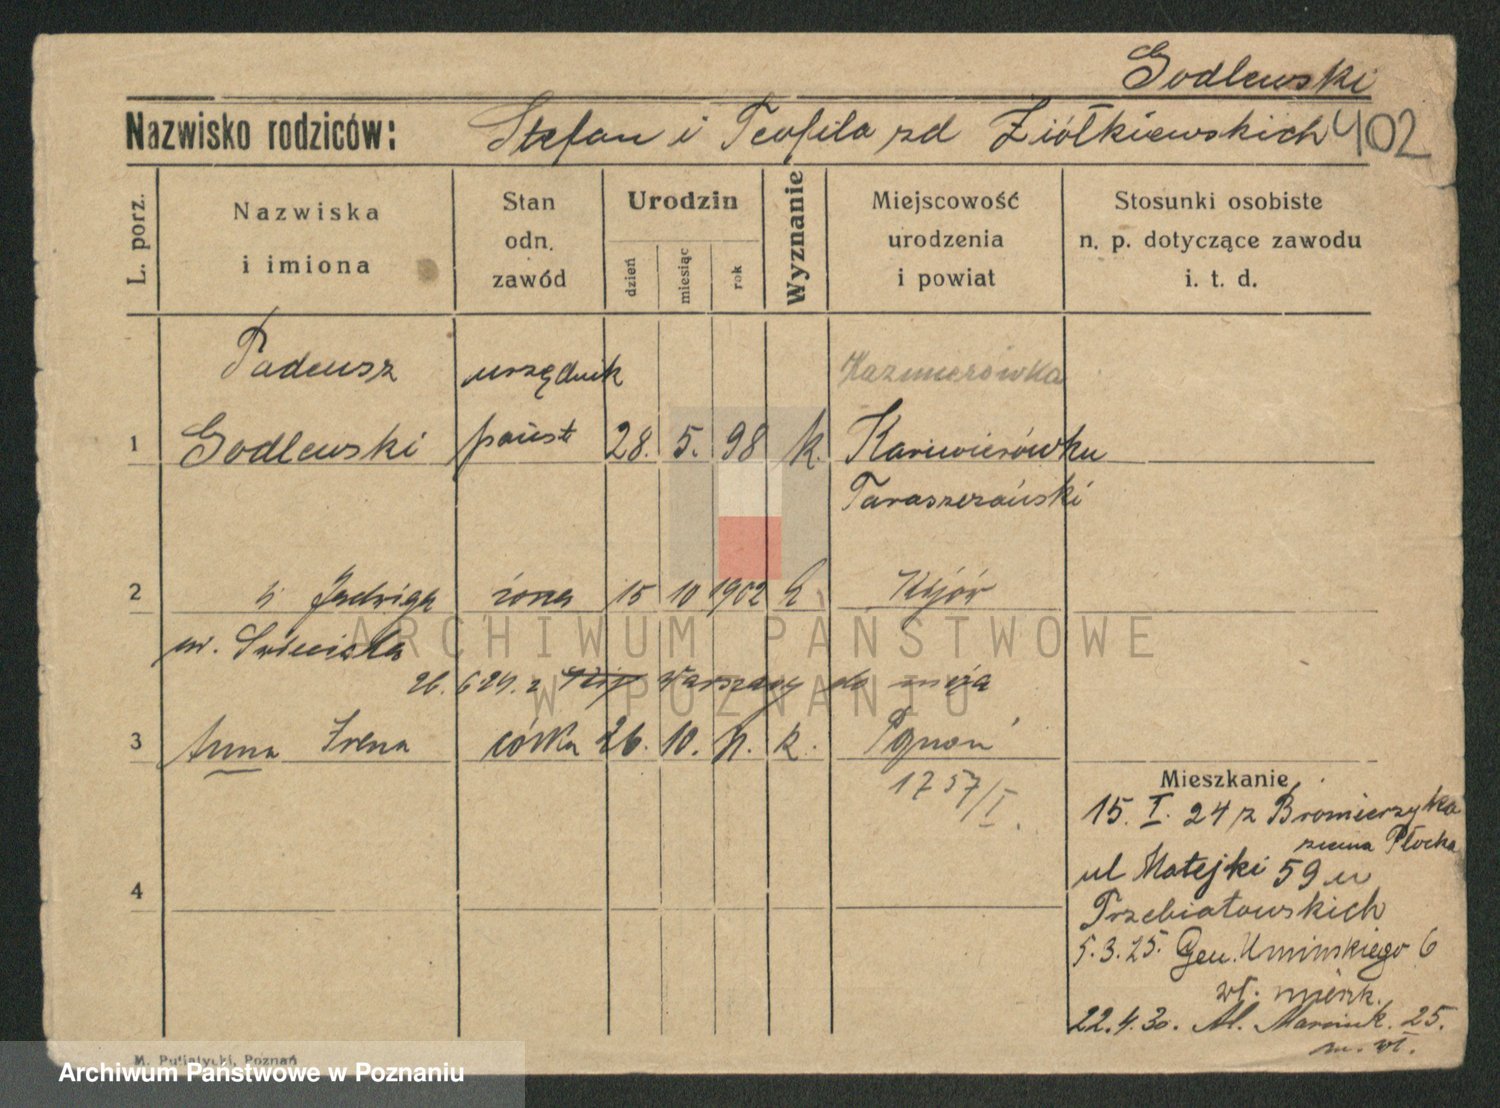 Godlewski
Nazwisko rodziców: Stefan i Teofila zd Ziółkiewskich 402
L. porz.
Nazwiska
i imiona
Stan
odn.
zawód
Urodzin
dzień
miesiąc
rok
Wyznanie
Miejscowość
urodzenia
i powiat
Stosunki osobiste
n. p. dotyczące zawodu
i. t. d.
Tadeusz urzędnik Kazimierówka
1 Godlewski państ 28. 5. 98 k. Kazimierówka
Taraszczański
2 Jadwiga żona 15 10 1902 k Kijów
26. 6 29. z Warszawy do męża
3 Anna Irena córka 26. 10. k. Poznań
1757/I.
Mieszkanie
15. I. 24 z Bromierzyka
ziema Płocka
ul Matejki 59 u
Trzebiatowskich
4
5. 3. 25. Gen. Umińskiego 6
wł. mieszk.
22. 4. 30. Al. Marcink. 25.
m. wł.
M. Putiatycki, Poznań
ARCHIWUM PAŃSTWOWE
W POZNANIU
Archiwum Państwowe w Poznaniu